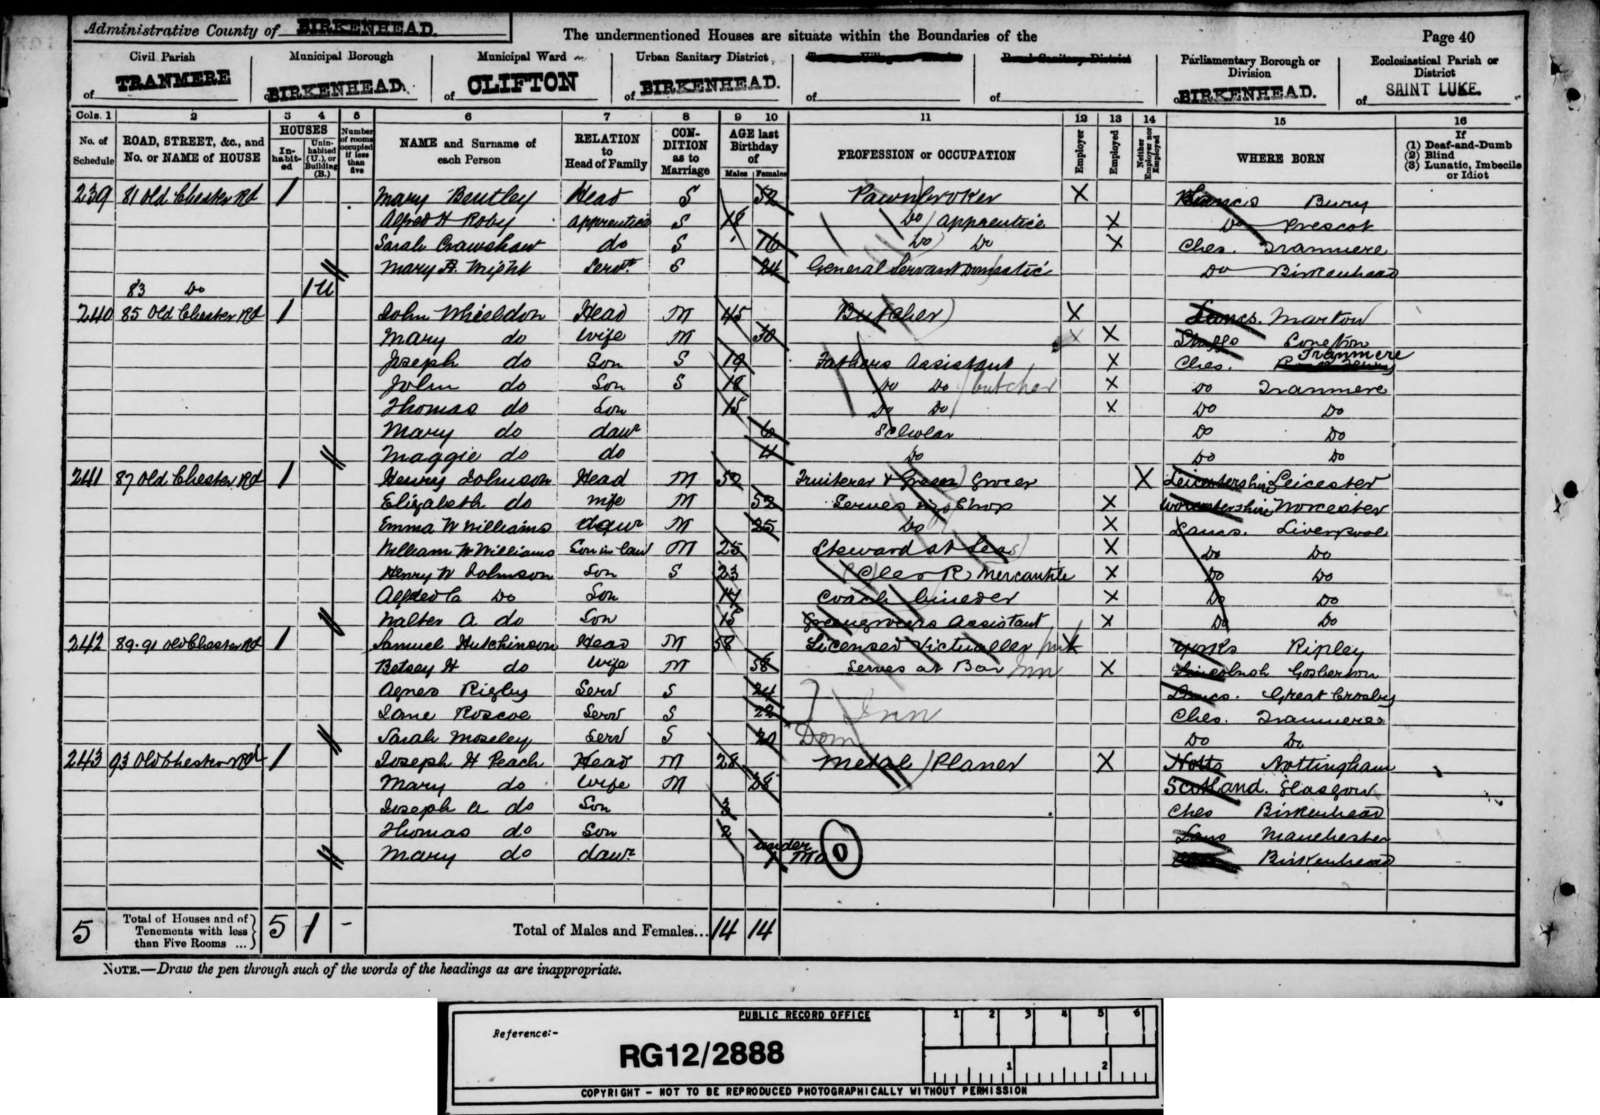 Administrative County of BIRKENHEAD.
The undermentioned Houses are situate within the Boundaries of the
Page 40
Civil Parish of TRANMERE
Municipal Borough of BIRKENHEAD.
Municipal Ward of CLIFTON
Urban Sanitary District of BIRKENHEAD.
of
Rural Sanitary District of
Parliamentary Borough or Division of BIRKENHEAD.
Ecclesiastical Parish or District of SAINT LUKE.
Cols. 1 2 3 4 5 6 7 8 9 10 11 12 13 14 15 16
No. of Schedule
ROAD, STREET, &c., and No. or NAME of HOUSE
HOUSES
In-habited
Unin-habited (U.), or Building (B.)
Number of rooms occupied if less than five
NAME and Surname of each Person
RELATION to Head of Family
CON-DITION as to Marriage
AGE last Birthday of
Males Females
PROFESSION or OCCUPATION
Employer
Employed
Neither Employer nor Employed
WHERE BORN
If (1) Deaf-and-Dumb (2) Blind (3) Lunatic, Imbecile or Idiot
239 81 Old Chester Rd 1 Mary Bentley Head S 52 Pawnbroker X Lancs Bury
Alfred H Roby apprentice S 18 Do apprentice X Do Prescot
Sarah Crawshaw do S 16 Do Do X Ches. Tranmere
Mary B. Wright Servt S 24 General Servant Domestic Do Birkenhead
83 Do 1U
240 85 Old Chester Rd 1 John Whieldon Head M 45 Butcher X Lancs. Marton
Mary do Wife M 50 X X Staffs
Joseph do Son S 19 Fathers Assistant X Ches. Tranmere
John do Son S 18 Do Do butcher X Do Tranmere
Thomas do Son 15 Do Do X Do Do
Mary do daur 6 Scholar Do Do
Maggie do do 4 Do Do Do
241 87 Old Chester Rd 1 Henry Johnson Head M 52 Fruiterer & Green Grocer X Leicestershire Leicester
Elizabeth do Wife M 52 Serves in Shop X Worcestershire Worcester
Emma W Williams daur M 25 Do X Lancs. Liverpool
William W Williams Son in law M 25 Steward at Sea X Do Do
Henry W Johnson Son S 23 Clerk Mercantile X Do Do
Alfred C Do Son 17 Coach X Do Do
Walter A do Son 15 Greengrocers Assistant X Do Do
242 89.91 Old Chester Rd 1 Samuel Hutchinson Head M 58 Licensed Victualler Inn X Yorks Ripley
Betsey H do Wife M 58 Serves at Bar Inn X Lincolnsh Gosberton
Agnes Rigby Serv S 24 Lancs. Great Crosby
Jane Roscoe Serv S 22 Inn Ches. Tranmere
Sarah Moseley Serv S 20 Dom Do Do
243 93 Old Chester Rd 1 Joseph H Peach Head M 28 Metal Planer X Notts Nottingham
Mary do Wife M 28 Scotland. Glasgow
Joseph A do Son 3 Ches Birkenhead
Thomas do Son 2 Lanc Manchester
Mary do daur under 1 Mo 0 Birkenhead
5 Total of Houses and of Tenements with less than Five Rooms ... 5 1 - Total of Males and Females... 14 14
NOTE.—Draw the pen through such of the words of the headings as are inappropriate.
PUBLIC RECORD OFFICE
1 2 3 4 5 6
Reference:-
RG12/2888
1 2
COPYRIGHT - NOT TO BE REPRODUCED PHOTOGRAPHICALLY WITHOUT PERMISSION